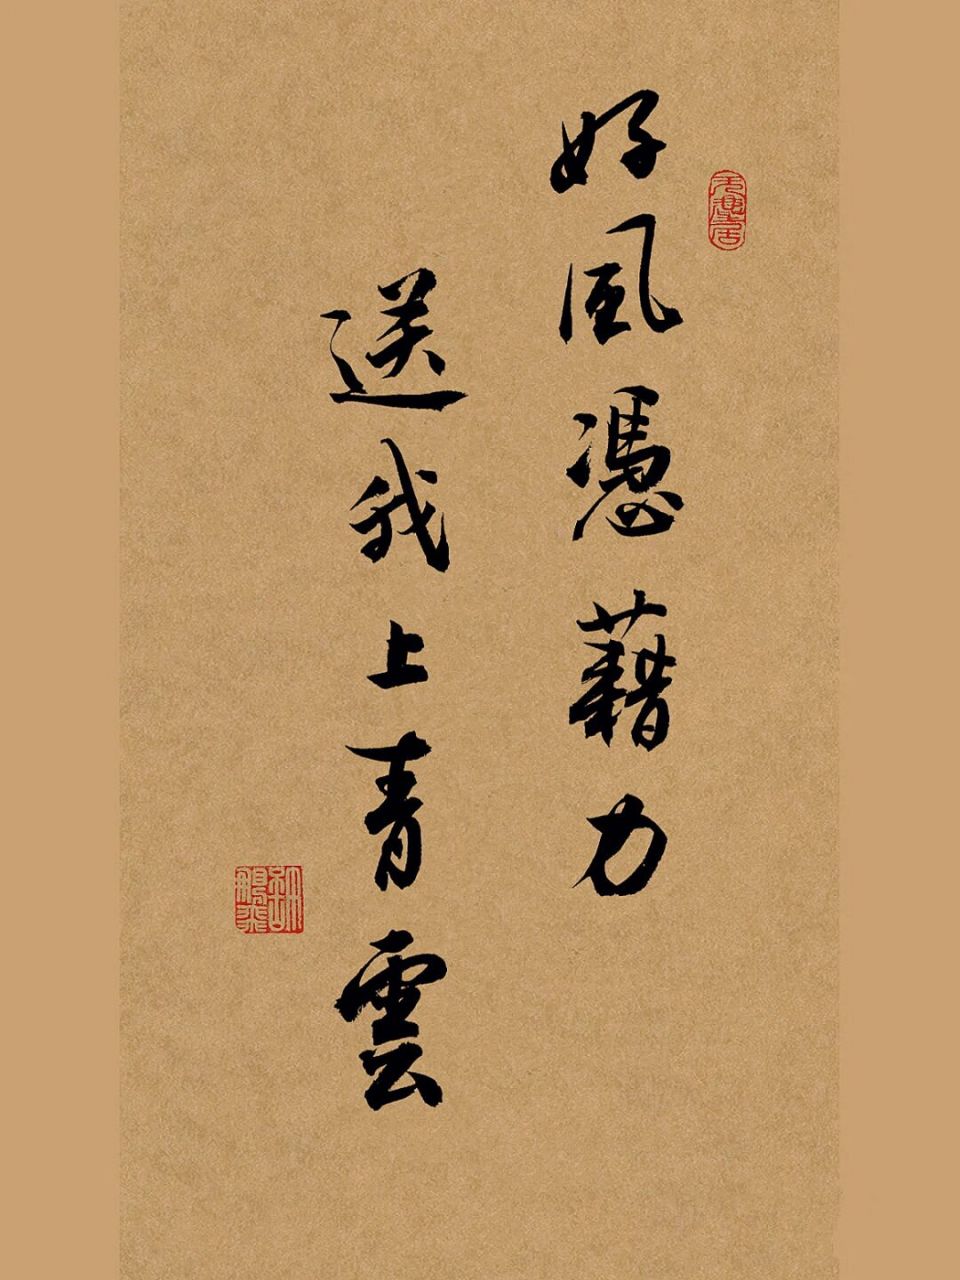 好風憑藉力
送我上青雲